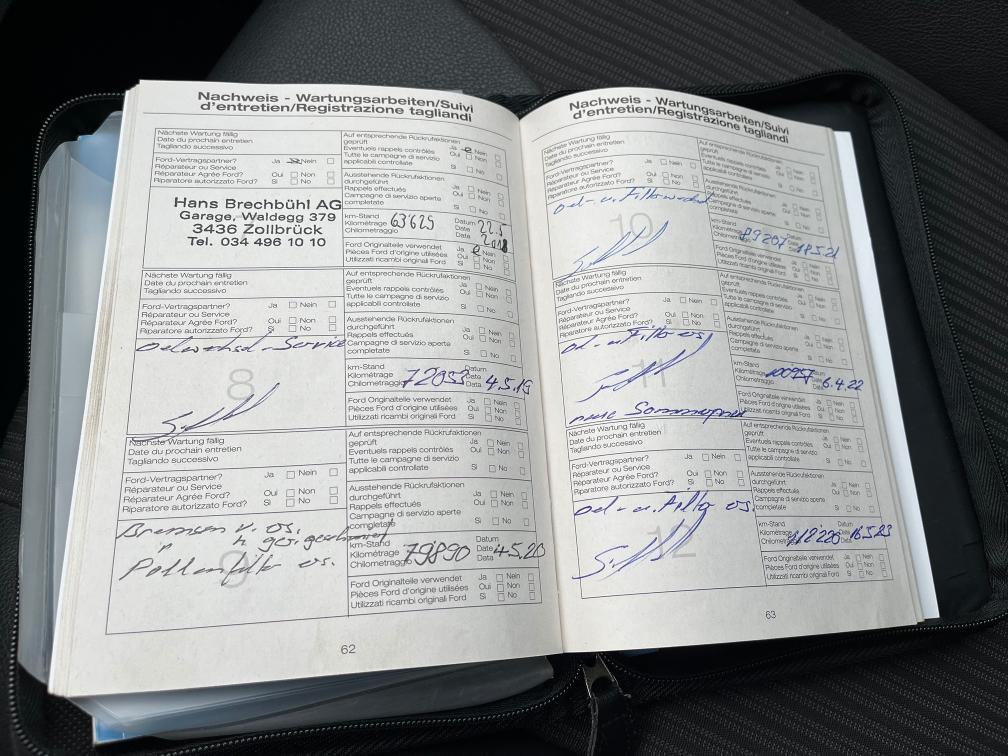 Nachweis - Wartungsarbeiten/Suivi
d'entretien/Registrazione tagliandi
Nächste Wartung fällig
Date du prochain entretien
Tagliando successivo
Ford-Vertragspartner? Ja Nein
Réparateur ou Service
Réparateur Agréé Ford? Oui Non
Riparatore autorizzato Ford? Si No
Hans Brechbühl AG
Garage, Waldegg 379
3436 Zollbrück
Tel. 034 496 10 10
Auf entsprechende Rückrufaktionen
geprüft Ja Nein
Eventuels rappels contrôlés Oui Non
Tutte le campagne di servizio
applicabili controllate Si No
Ausstehende Rückrufaktionen
durchgeführt Ja Nein
Rappels effectués Oui Non
Campagne di servizio aperte
completate Si No
km-Stand Datum
Kilométrage 63625 Date 22.5
Chilometraggio Data 2018
Ford Originalteile verwendet Ja Nein
Pièces Ford d'origine utilisées Oui Non
Utilizzati ricambi originali Ford Si No
Nächste Wartung fällig
Date du prochain entretien
Tagliando successivo
Ford-Vertragspartner? Ja Nein
Réparateur ou Service
Réparateur Agréé Ford? Oui Non
Riparatore autorizzato Ford? Si No
Oelwechsel-Service
8
Auf entsprechende Rückrufaktionen
geprüft Ja Nein
Eventuels rappels contrôlés Oui Non
Tutte le campagne di servizio
applicabili controllate Si No
Ausstehende Rückrufaktionen
durchgeführt Ja Nein
Rappels effectués Oui Non
Campagne di servizio aperte
completate Si No
km-Stand Datum
Kilométrage 72053 Date 4.5.19
Chilometraggio Data
Ford Originalteile verwendet Ja Nein
Pièces Ford d'origine utilisées Oui Non
Utilizzati ricambi originali Ford Si No
Nächste Wartung fällig
Date du prochain entretien
Tagliando successivo
Ford-Vertragspartner? Ja Nein
Réparateur ou Service
Réparateur Agréé Ford? Oui Non
Riparatore autorizzato Ford? Si No
Bremsen v. os.
h. ger. geschmiert
Pollenfilter os.
9
Auf entsprechende Rückrufaktionen
geprüft Ja Nein
Eventuels rappels contrôlés Oui Non
Tutte le campagne di servizio
applicabili controllate Si No
Ausstehende Rückrufaktionen
durchgeführt Ja Nein
Rappels effectués Oui Non
Campagne di servizio aperte
completate Si No
km-Stand Datum
Kilométrage 79890 Date 4.5.20
Chilometraggio Data
Ford Originalteile verwendet Ja Nein
Pièces Ford d'origine utilisées Oui Non
Utilizzati ricambi originali Ford Si No
62
Nachweis - Wartungsarbeiten/Suivi
d'entretien/Registrazione tagliandi
Nächste Wartung fällig
Date du prochain entretien
Tagliando successivo
Ford-Vertragspartner? Ja Nein
Réparateur ou Service
Réparateur Agréé Ford? Oui Non
Riparatore autorizzato Ford? Si No
Oel- u. Filterwechsel
10
Auf entsprechende Rückrufaktionen
geprüft Ja Nein
Eventuels rappels contrôlés Oui Non
Tutte le campagne di servizio
applicabili controllate Si No
Ausstehende Rückrufaktionen
durchgeführt Ja Nein
Rappels effectués Oui Non
Campagne di servizio aperte
completate Si No
km-Stand Datum
Kilométrage 89207 Date 18.5.21
Chilometraggio Data
Ford Originalteile verwendet Ja Nein
Pièces Ford d'origine utilisées Oui Non
Utilizzati ricambi originali Ford Si No
Nächste Wartung fällig
Date du prochain entretien
Tagliando successivo
Ford-Vertragspartner? Ja Nein
Réparateur ou Service
Réparateur Agréé Ford? Oui Non
Riparatore autorizzato Ford? Si No
Oel- u. Filter os.
11
neue Sommerpneu
Auf entsprechende Rückrufaktionen
geprüft Ja Nein
Eventuels rappels contrôlés Oui Non
Tutte le campagne di servizio
applicabili controllate Si No
Ausstehende Rückrufaktionen
durchgeführt Ja Nein
Rappels effectués Oui Non
Campagne di servizio aperte
completate Si No
km-Stand Datum
Kilométrage 100957 Date 6.4.22
Chilometraggio Data
Ford Originalteile verwendet Ja Nein
Pièces Ford d'origine utilisées Oui Non
Utilizzati ricambi originali Ford Si No
Nächste Wartung fällig
Date du prochain entretien
Tagliando successivo
Ford-Vertragspartner? Ja Nein
Réparateur ou Service
Réparateur Agréé Ford? Oui Non
Riparatore autorizzato Ford? Si No
Oel- u. Filter os.
12
Auf entsprechende Rückrufaktionen
geprüft Ja Nein
Eventuels rappels contrôlés Oui Non
Tutte le campagne di servizio
applicabili controllate Si No
Ausstehende Rückrufaktionen
durchgeführt Ja Nein
Rappels effectués Oui Non
Campagne di servizio aperte
completate Si No
km-Stand Datum
Kilométrage 118220 Date 16.5.23
Chilometraggio Data
Ford Originalteile verwendet Ja Nein
Pièces Ford d'origine utilisées Oui Non
Utilizzati ricambi originali Ford Si No
63